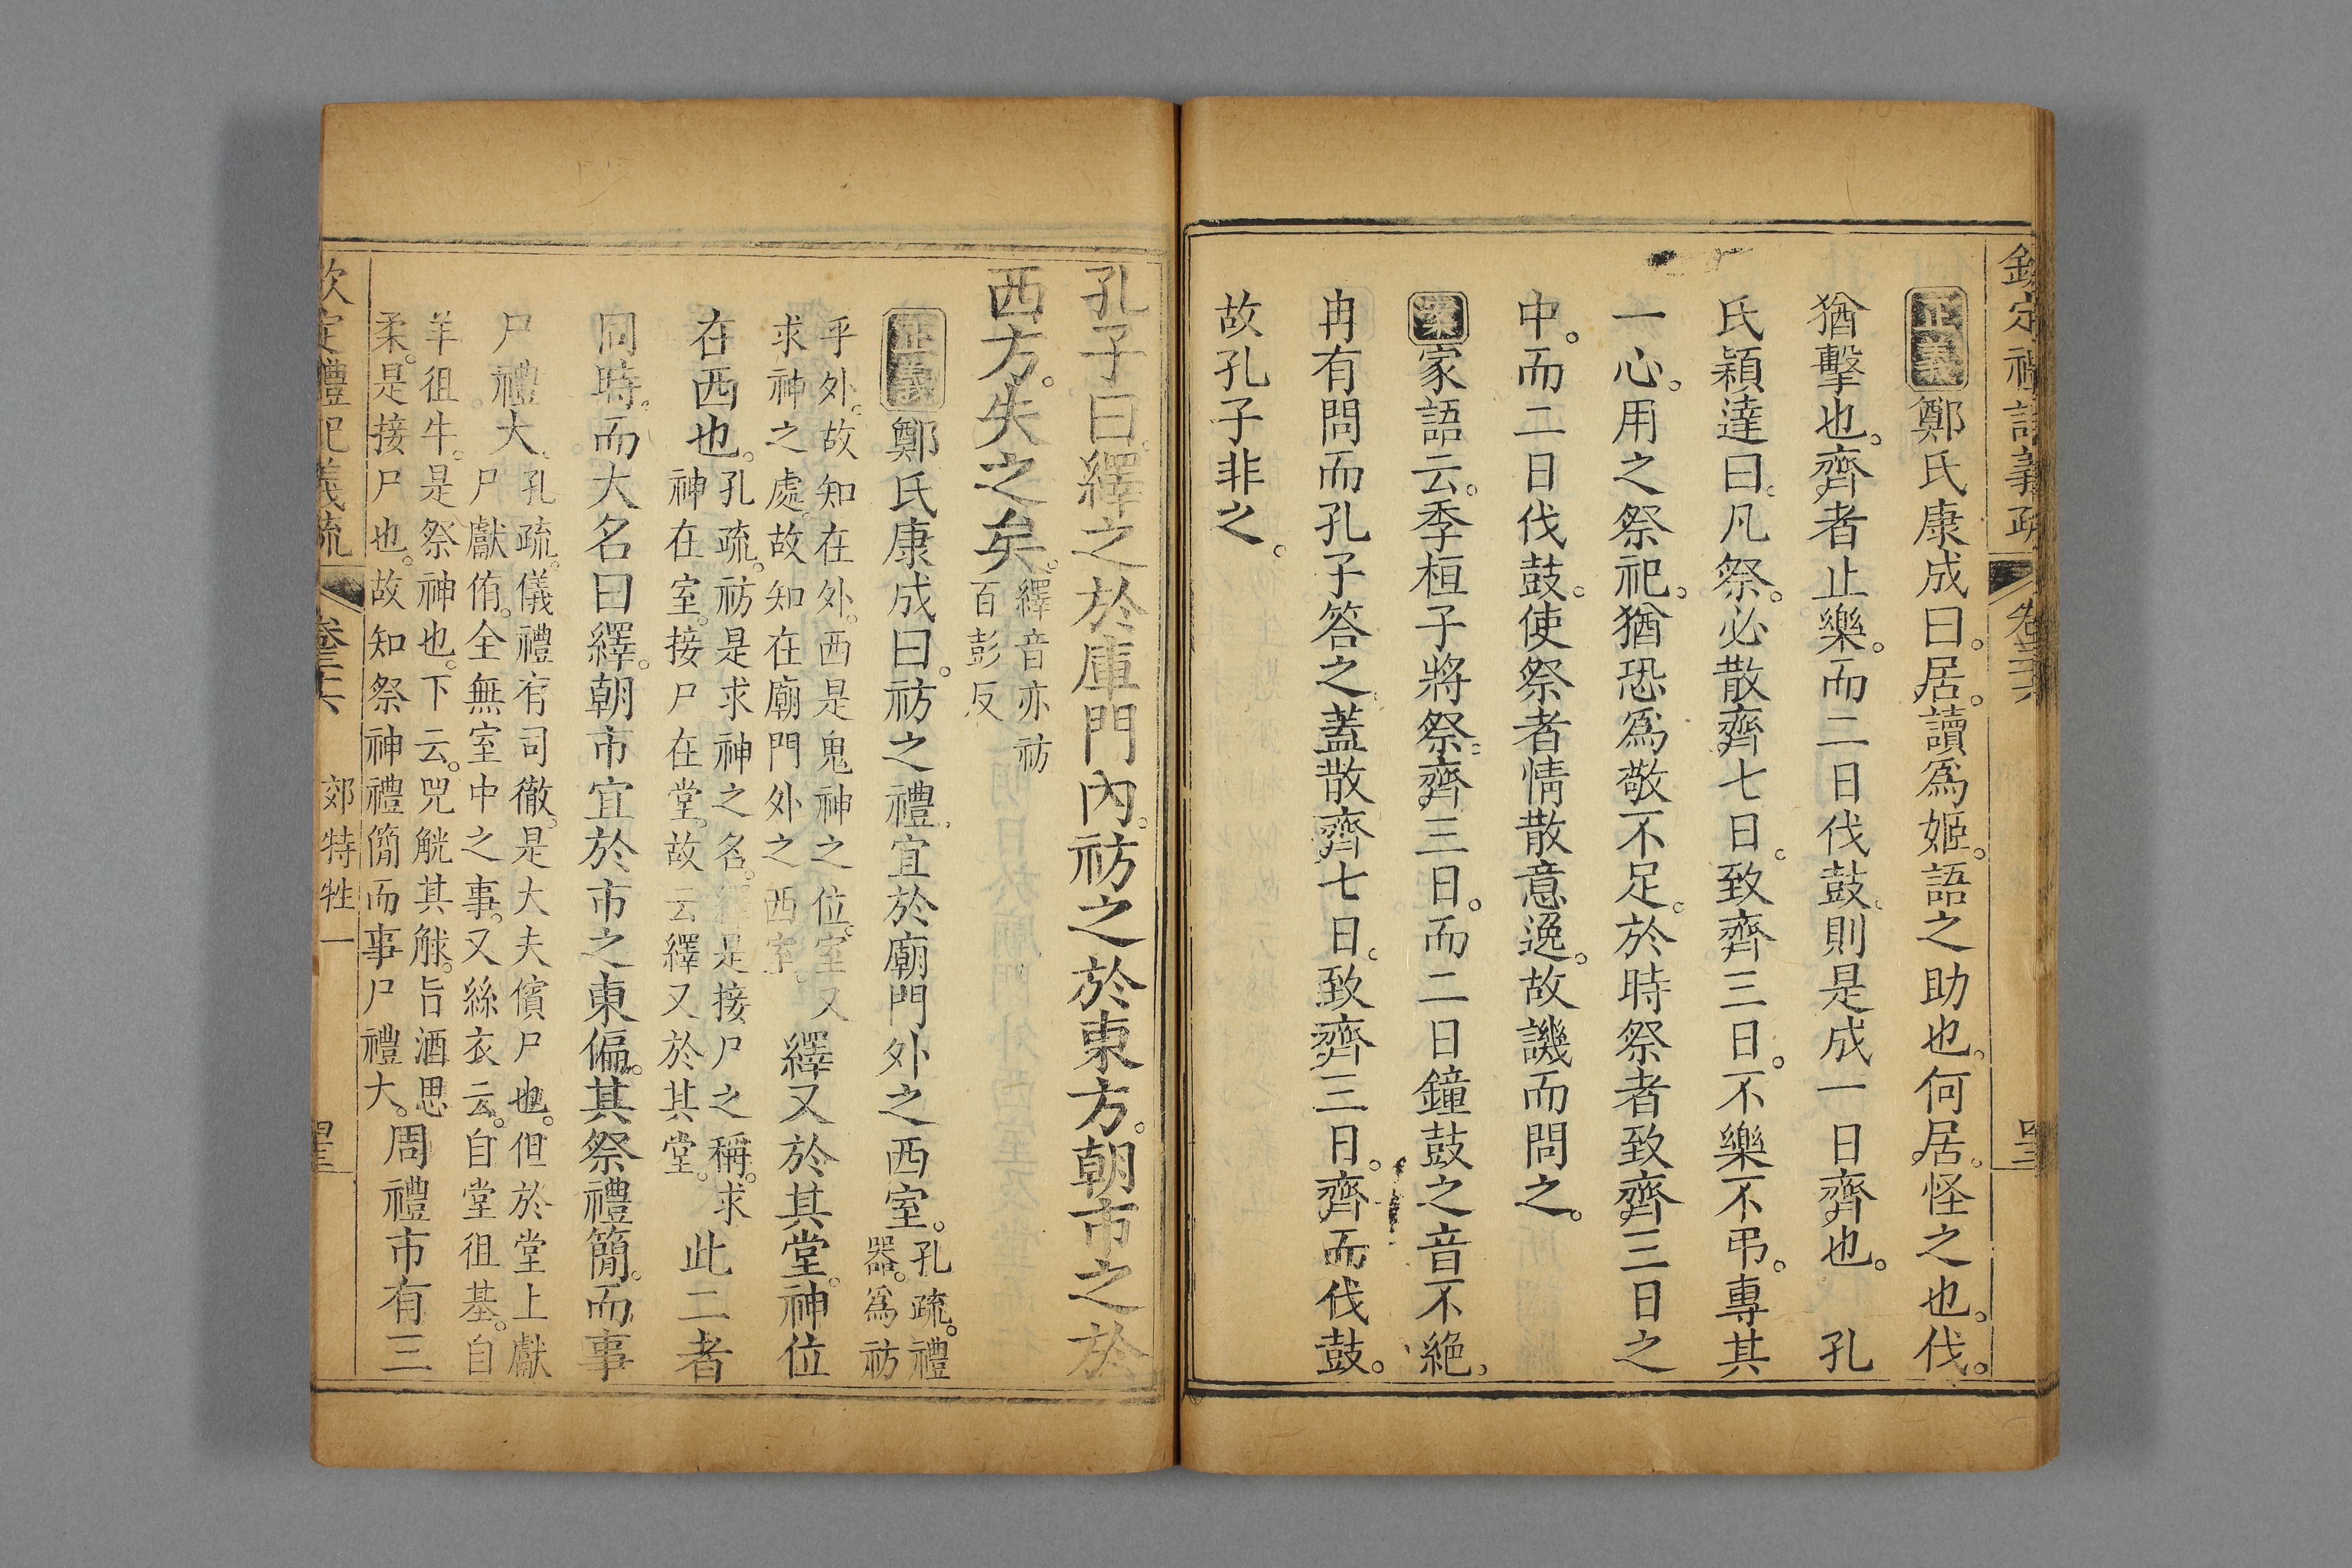 欽定禮記義疏 卷三十六
正義鄭氏康成曰。居。讀爲姬。語之助也。何居。怪之也。伐。
猶擊也。齊者止樂。而二日伐鼓。則是成一日齊也。 孔
氏穎達曰。凡祭。必散齊七日。致齊三日。不樂不弔。專其
一心。用之祭祀。猶恐爲敬不足。於時祭者致齊三日之
中。而二日伐鼓。使祭者情散意逸。故譏而問之。
案家語云。季桓子將祭。齊三日。而二日鐘鼓之音不絕。
冉有問而孔子答之。蓋散齊七日。致齊三日。齊而伐鼓。
故孔子非之。
孔子曰。繹之於庫門內。祊之於東方。朝市之於
西方。失之矣。繹音亦祊
百彭反
正義鄭氏康成曰。祊之禮。宜於廟門外之西室。孔疏。禮
器。爲祊
乎外。故知在外。西是鬼神之位。室又
求神之處。故知在廟門外之西室。繹又於其堂。神位
在西也。孔疏。祊是求神之名。繹是接尸之稱。求
神在室。接尸在堂。故云繹又於其堂。此二者
同時。而大名曰繹。朝市宜於市之東偏。其祭禮簡。而事
尸禮大。孔疏。儀禮有司徹。是大夫儐尸也。但於堂上獻
尸獻侑。全無室中之事。又絲衣云。自堂徂基。自
羊徂牛。是祭神也。下云。兕觥其觩。旨酒思
柔。是接尸也。故知祭神禮簡而事尸禮大。周禮市有三
欽定禮記義疏 卷三十六 郊特牲一